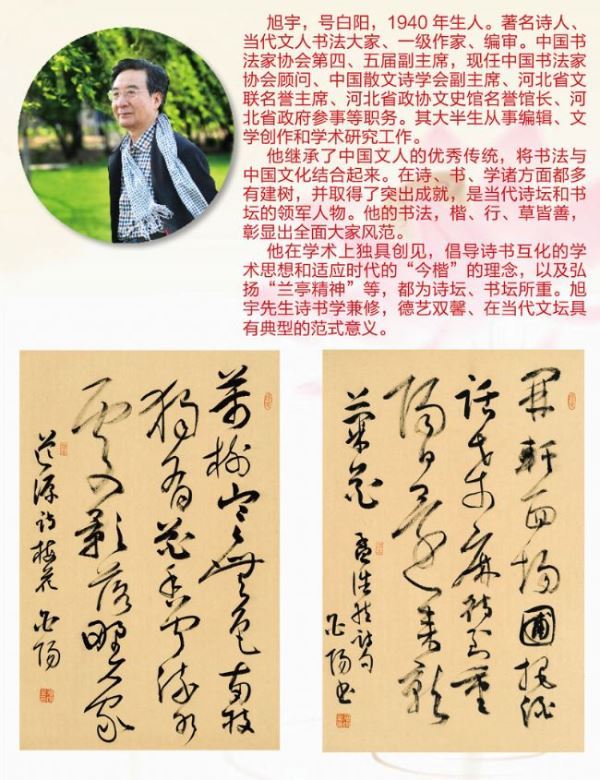 旭宇，号白阳，1940年生人。著名诗人、
当代文人书法大家、一级作家、编审。中国书
法家协会第四、五届副主席，现任中国书法家
协会顾问、中国散文诗学会副主席、河北省文
联名誉主席、河北省政协文史馆名誉馆长、河
北省政府参事等职务。其大半生从事编辑、文
学创作和学术研究工作。
他继承了中国文人的优秀传统，将书法与
中国文化结合起来。在诗、书、学诸方面都多
有建树，并取得了突出成就，是当代诗坛和书
坛的领军人物。他的书法，楷、行、草皆善，
彰显出全面大家风范。
他在学术上独具创见，倡导诗书互化的学
术思想和适应时代的“今楷”的理念，以及弘
扬“兰亭精神”等，都为诗坛、书坛所重。旭
宇先生诗书学兼修，德艺双馨、在当代文坛具
有典型的范式意义。
萬樹寒無色南枝
獨有花香聞流水
處影落野人家
道源詩梅花 白陽
開軒面場圃把酒
話桑麻待到重
陽日還來就
菊花 孟浩然詩句
白陽書